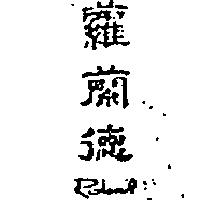 蘿蘭德
Roland